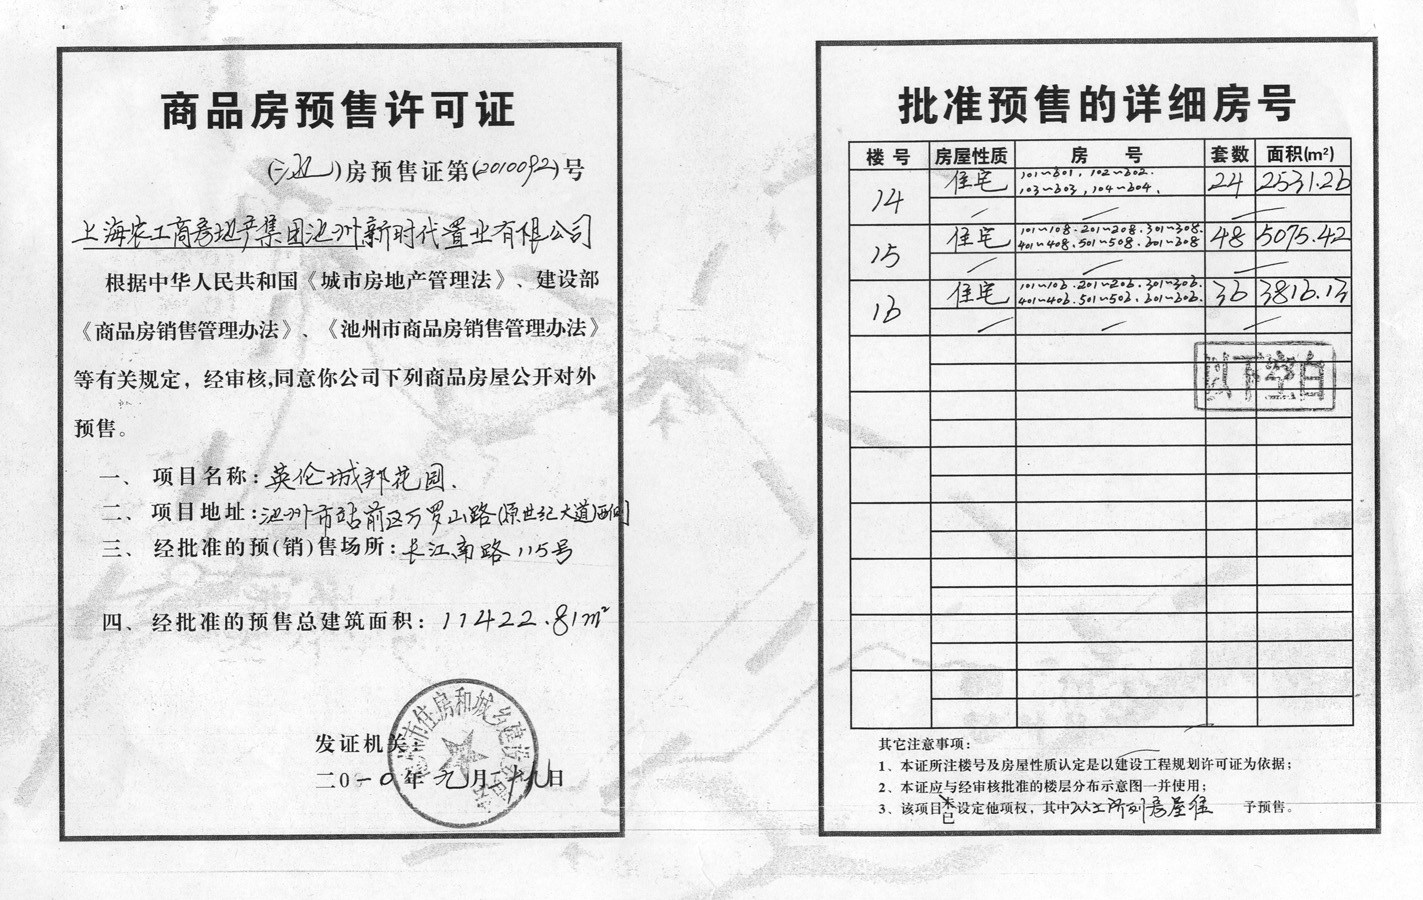 商品房预售许可证
(池)房预售证第(2010092)号
上海农工商房地产集团池州新时代置业有限公司
根据中华人民共和国《城市房地产管理法》、建设部
《商品房销售管理办法》、《池州市商品房销售管理办法》
等有关规定，经审核,同意你公司下列商品房屋公开对外
预售。
一、项目名称:英伦城邦花园.
二、项目地址:池州市站前区万罗山路(原世纪大道)西侧
三、经批准的预(销)售场所:长江南路115号
四、经批准的预售总建筑面积:11422.81m²
发证机关:
二0一0年九月二十九日
市住房和城乡建设
批准预售的详细房号
楼号 房屋性质 房号 套数 面积(m²)
14 住宅 101~601, 102~602. 24 2531.26
103~603, 104~604.
15 住宅 101~108.201~208.301~308. 48 5075.42
401~408.501~508.301~308
16 住宅 101~106.201~206.301~306. 36 3816.13
401~406.501~506.301~306.
以下空白
其它注意事项:
1、本证所注楼号及房屋性质认定是以建设工程规划许可证为依据;
2、本证应与经审核批准的楼层分布示意图一并使用;
3、该项目未/已设定他项权，其中以上所列房屋准予预售。